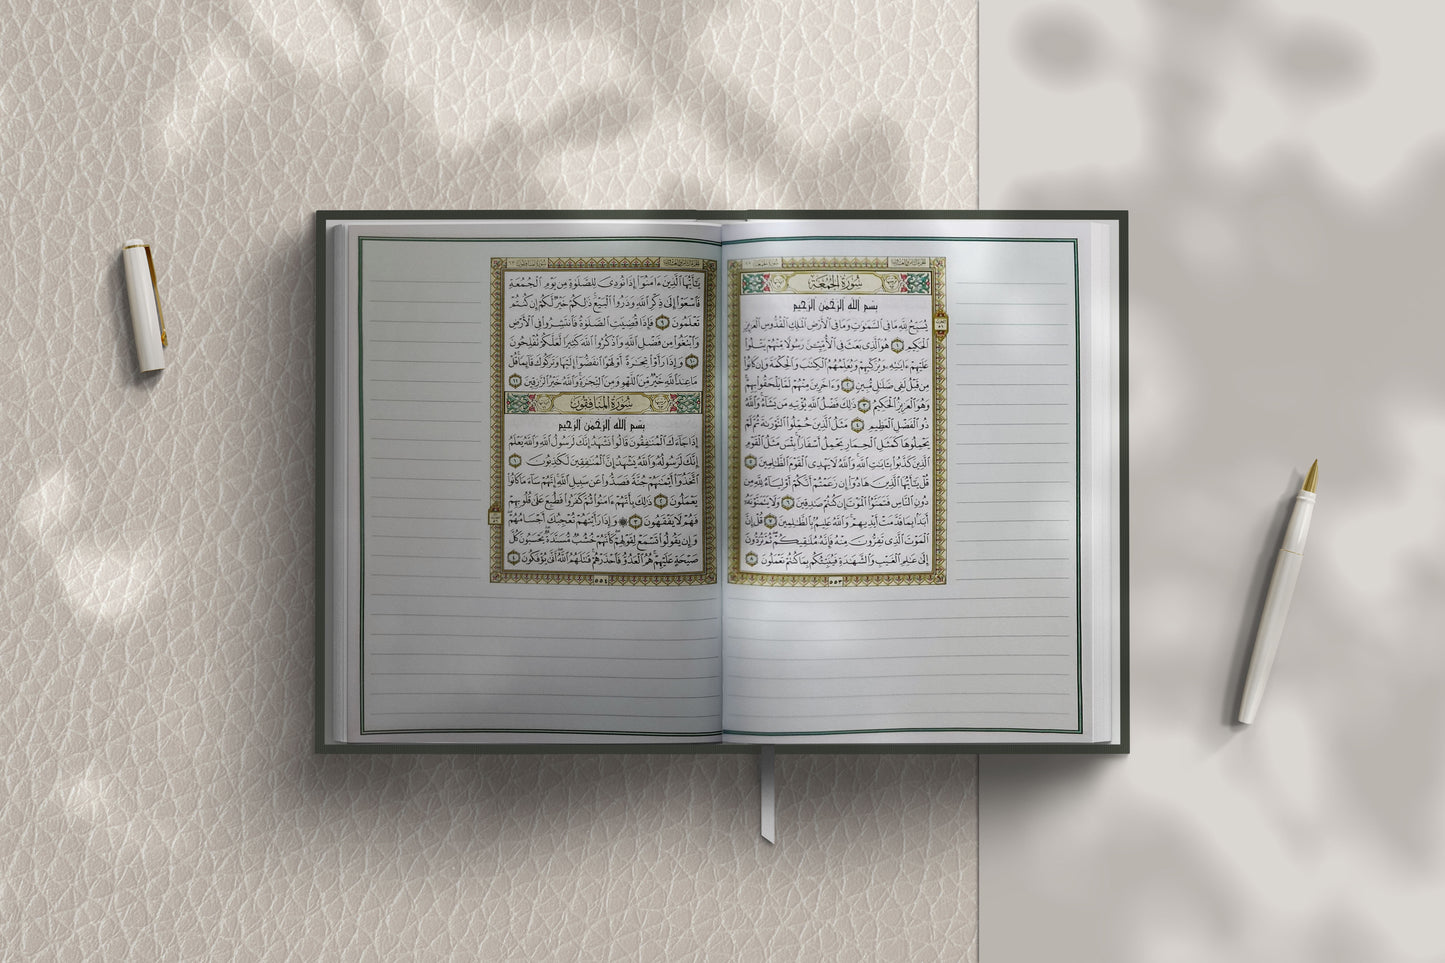 سُورَةُ الجُمُعَة
بِسْمِ اللهِ الرَّحْمَٰنِ الرَّحِيمِ
يُسَبِّحُ لِلَّهِ مَا فِى ٱلسَّمَٰوَٰتِ وَمَا فِى ٱلْأَرْضِ ٱلْمَلِكِ ٱلْقُدُّوسِ ٱلْعَزِيزِ
ٱلْحَكِيمِ ١ هُوَ ٱلَّذِى بَعَثَ فِى ٱلْأُمِّيِّـۧنَ رَسُولًا مِّنْهُمْ يَتْلُوا۟
عَلَيْهِمْ ءَايَٰتِهِۦ وَيُزَكِّيهِمْ وَيُعَلِّمُهُمُ ٱلْكِتَٰبَ وَٱلْحِكْمَةَ وَإِن كَانُوا۟
مِن قَبْلُ لَفِى ضَلَٰلٍ مُّبِينٍ ٢ وَءَاخَرِينَ مِنْهُمْ لَمَّا يَلْحَقُوا۟ بِهِمْ
وَهُوَ ٱلْعَزِيزُ ٱلْحَكِيمُ ٣ ذَٰلِكَ فَضْلُ ٱللَّهِ يُؤْتِيهِ مَن يَشَآءُ وَٱللَّهُ
ذُو ٱلْفَضْلِ ٱلْعَظِيمِ ٤ مَثَلُ ٱلَّذِينَ حُمِّلُوا۟ ٱلتَّوْرَىٰةَ ثُمَّ لَمْ
يَحْمِلُوهَا كَمَثَلِ ٱلْحِمَارِ يَحْمِلُ أَسْفَارًۢا بِئْسَ مَثَلُ ٱلْقَوْمِ
ٱلَّذِينَ كَذَّبُوا۟ بِـَٔايَٰتِ ٱللَّهِ وَٱللَّهُ لَا يَهْدِى ٱلْقَوْمَ ٱلظَّٰلِمِينَ ٥
قُلْ يَٰٓأَيُّهَا ٱلَّذِينَ هَادُوٓا۟ إِن زَعَمْتُمْ أَنَّكُمْ أَوْلِيَآءُ لِلَّهِ مِن
دُونِ ٱلنَّاسِ فَتَمَنَّوُا۟ ٱلْمَوْتَ إِن كُنتُمْ صَٰدِقِينَ ٦ وَلَا يَتَمَنَّوْنَهُۥٓ
أَبَدًۢا بِمَا قَدَّمَتْ أَيْدِيهِمْ وَٱللَّهُ عَلِيمٌۢ بِٱلظَّٰلِمِينَ ٧ قُلْ إِنَّ
ٱلْمَوْتَ ٱلَّذِى تَفِرُّونَ مِنْهُ فَإِنَّهُۥ مُلَٰقِيكُمْ ثُمَّ تُرَدُّونَ
إِلَىٰ عَٰلِمِ ٱلْغَيْبِ وَٱلشَّهَٰدَةِ فَيُنَبِّئُكُم بِمَا كُنتُمْ تَعْمَلُونَ ٨
٥٥٣
يَٰٓأَيُّهَا ٱلَّذِينَ ءَامَنُوٓا۟ إِذَا نُودِىَ لِلصَّلَوٰةِ مِن يَوْمِ ٱلْجُمُعَةِ
فَٱسْعَوْا۟ إِلَىٰ ذِكْرِ ٱللَّهِ وَذَرُوا۟ ٱلْبَيْعَ ذَٰلِكُمْ خَيْرٌ لَّكُمْ إِن كُنتُمْ
تَعْلَمُونَ ٩ فَإِذَا قُضِيَتِ ٱلصَّلَوٰةُ فَٱنتَشِرُوا۟ فِى ٱلْأَرْضِ
وَٱبْتَغُوا۟ مِن فَضْلِ ٱللَّهِ وَٱذْكُرُوا۟ ٱللَّهَ كَثِيرًا لَّعَلَّكُمْ تُفْلِحُونَ
١٠ وَإِذَا رَأَوْا۟ تِجَٰرَةً أَوْ لَهْوًا ٱنفَضُّوٓا۟ إِلَيْهَا وَتَرَكُوكَ قَآئِمًا قُلْ
مَا عِندَ ٱللَّهِ خَيْرٌ مِّنَ ٱللَّهْوِ وَمِنَ ٱلتِّجَٰرَةِ وَٱللَّهُ خَيْرُ ٱلرَّٰزِقِينَ ١١
سُورَةُ المُنَافِقُون
بِسْمِ اللهِ الرَّحْمَٰنِ الرَّحِيمِ
إِذَا جَآءَكَ ٱلْمُنَٰفِقُونَ قَالُوا۟ نَشْهَدُ إِنَّكَ لَرَسُولُ ٱللَّهِ وَٱللَّهُ يَعْلَمُ
إِنَّكَ لَرَسُولُهُۥ وَٱللَّهُ يَشْهَدُ إِنَّ ٱلْمُنَٰفِقِينَ لَكَٰذِبُونَ ١
ٱتَّخَذُوٓا۟ أَيْمَٰنَهُمْ جُنَّةً فَصَدُّوا۟ عَن سَبِيلِ ٱللَّهِ إِنَّهُمْ سَآءَ مَا كَانُوا۟
يَعْمَلُونَ ٢ ذَٰلِكَ بِأَنَّهُمْ ءَامَنُوا۟ ثُمَّ كَفَرُوا۟ فَطُبِعَ عَلَىٰ قُلُوبِهِمْ
فَهُمْ لَا يَفْقَهُونَ ٣ ۞ وَإِذَا رَأَيْتَهُمْ تُعْجِبُكَ أَجْسَامُهُمْ
وَإِن يَقُولُوا۟ تَسْمَعْ لِقَوْلِهِمْ كَأَنَّهُمْ خُشُبٌ مُّسَنَّدَةٌ يَحْسَبُونَ كُلَّ
صَيْحَةٍ عَلَيْهِمْ هُمُ ٱلْعَدُوُّ فَٱحْذَرْهُمْ قَٰتَلَهُمُ ٱللَّهُ أَنَّىٰ يُؤْفَكُونَ ٤
٥٥٤